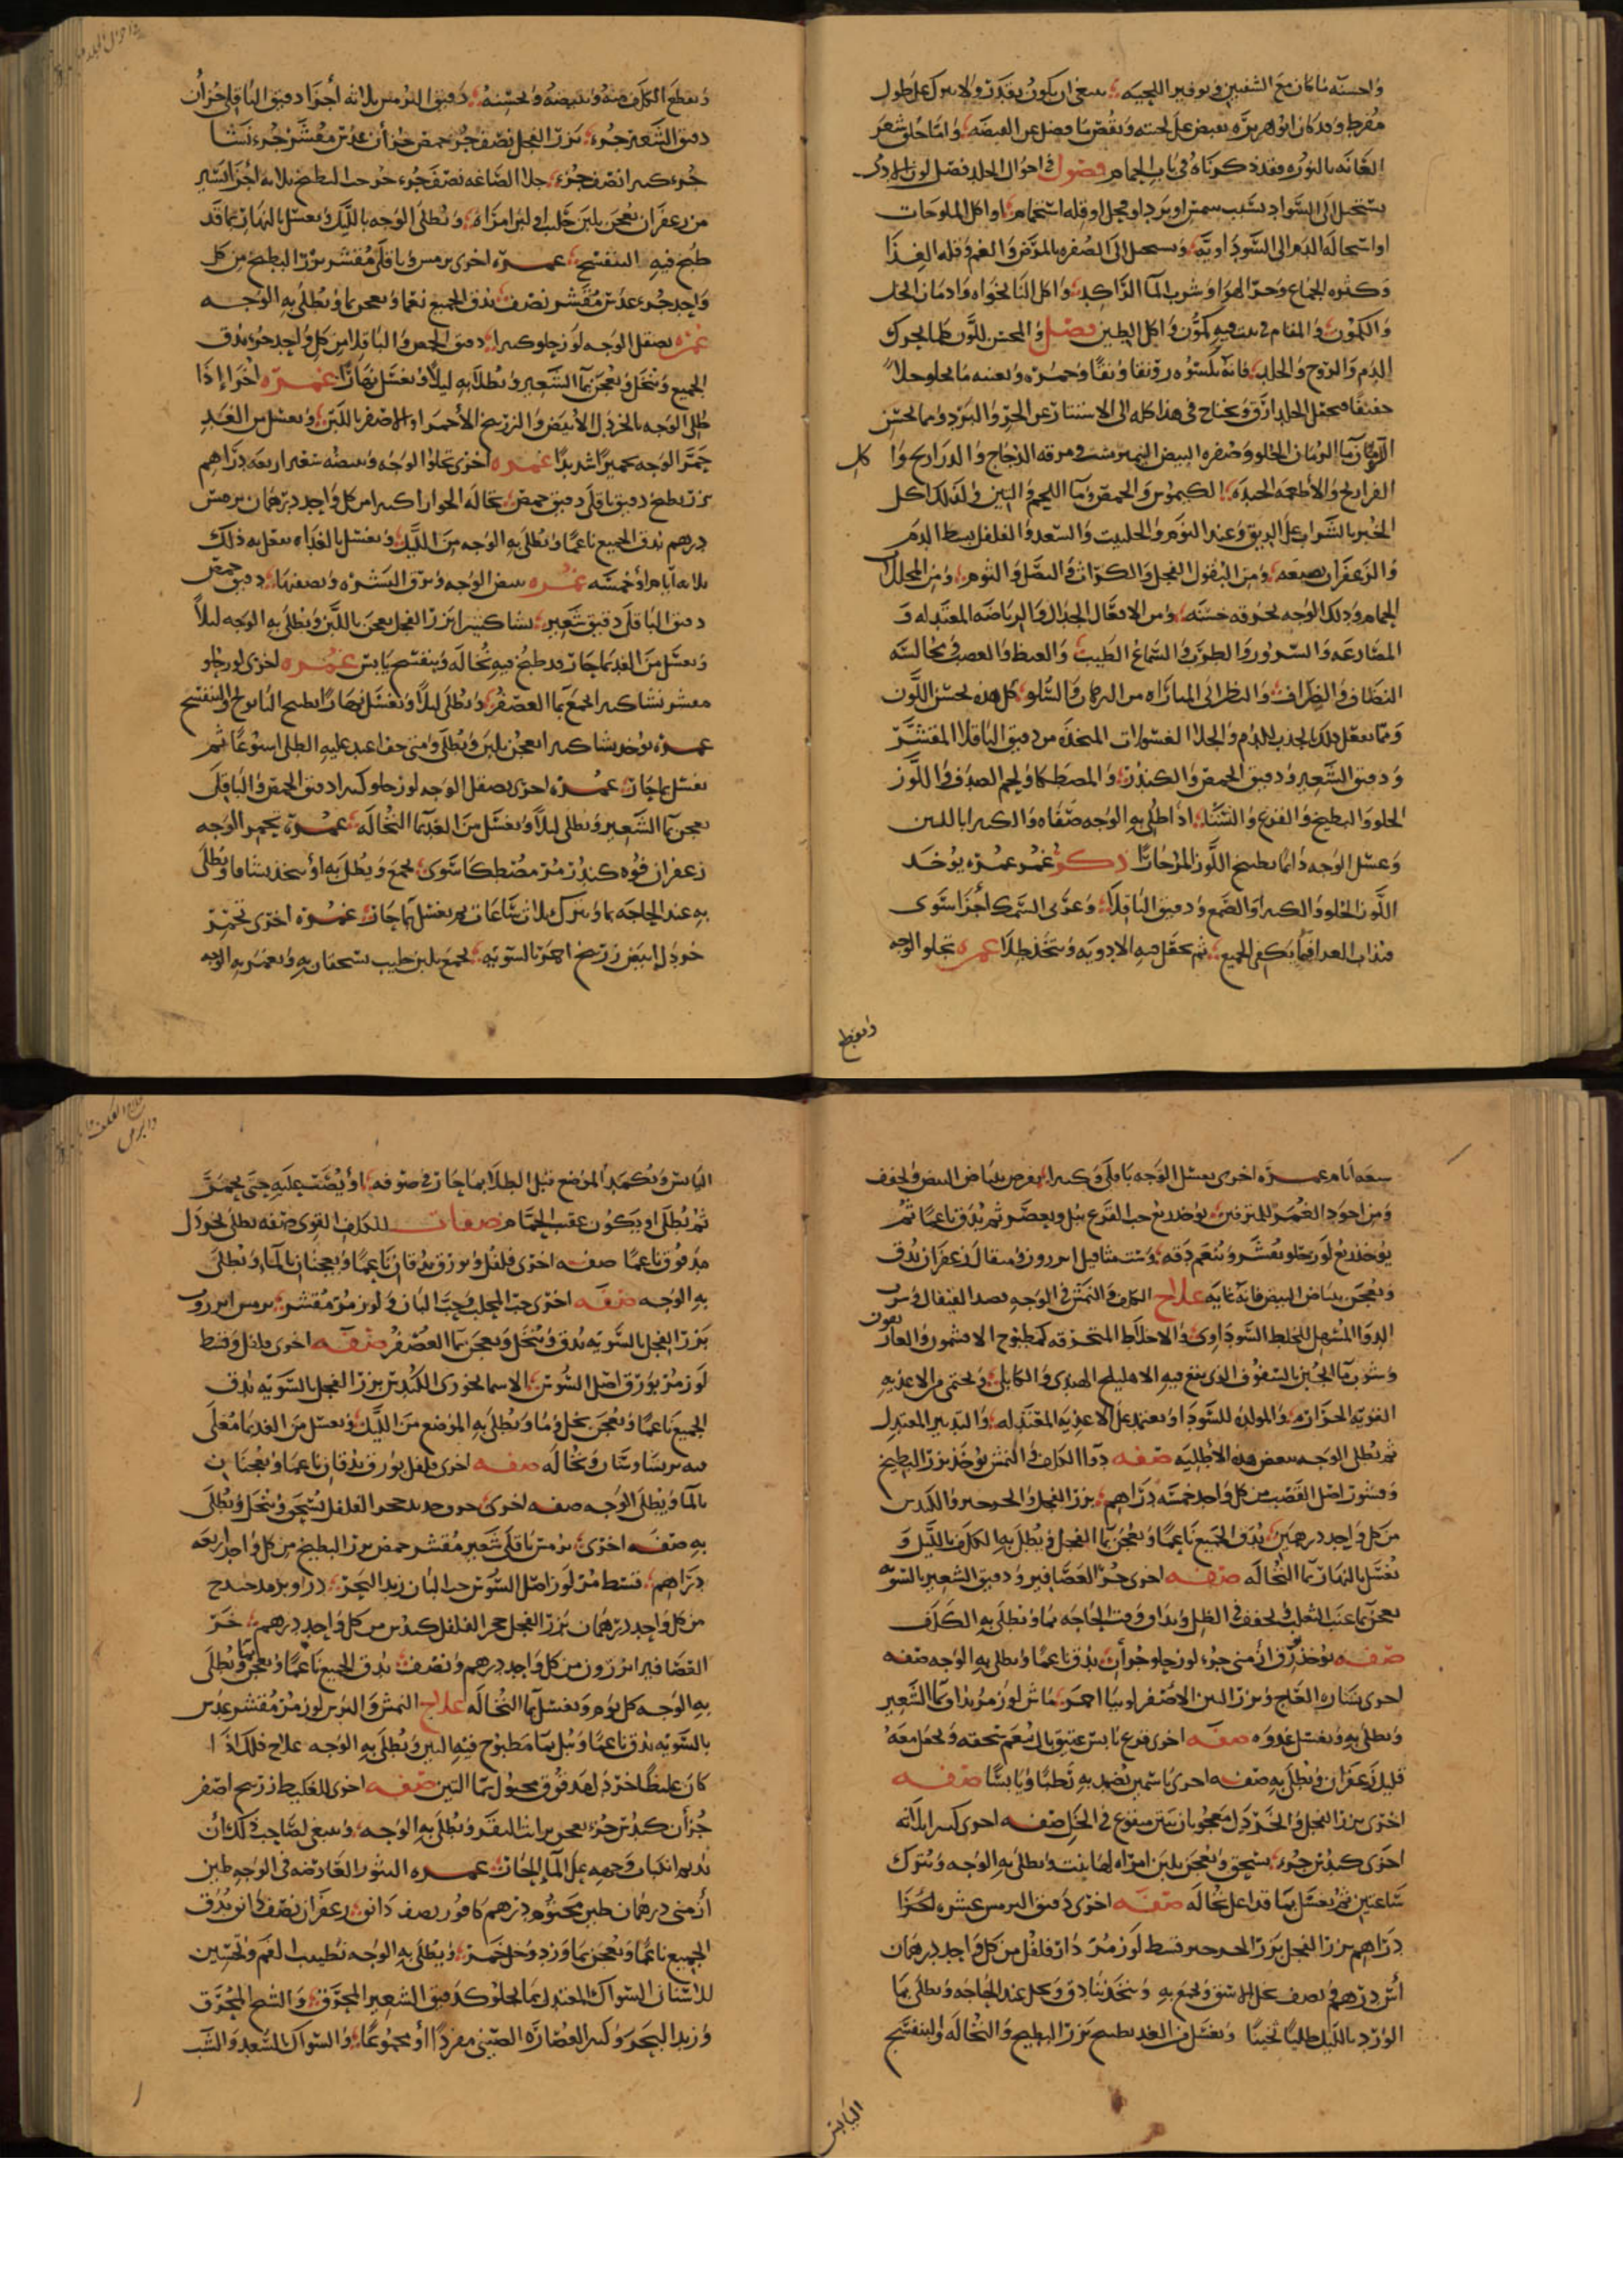 واحسنه ماكان مع الشفتين وتوفير اللحيه ينبغى ان يكون بقدر ولا يترك على طول
مفرط وقد كان ابو هريره يقبض على لحيته ويقص ما فضل عن القبضه واما حلق شعر
العانه بالنوره فقد ذكرناه فى باب الحمام فصول فى احوال الجلد فصل لون الجلد
يستحيل الى السواد بسبب شمس او برد او ريح او قله استحمام او اكل الملوحات
او استحاله الدم الى السوداويه ويستحيل الى الصفره بالمرض والغم وقله الغذا
وكثره الجماع وحر الهوا وشرب المآ الراكد واكل النانخواه وادمان الخل
والكمون والمقام فى بيت فيه كمون واكل الطين فصل والمحسن للون كلما يحرك
الدم والروح والجلد فانه يكسوه رونقا ونقا وحمره ويعينه ما يجلو جلاً
خفيفا فيجعل الجلد ارق ويحتاج فى هذا كله الى الاستتار عن الحر والبرد ومما يحسن
اللون مآ الرمان الحلو وصفره البيض النيمبرشت ومرقه الدجاج والدراريج وا كل
الفراريج والاطعمه الجيده الكيموس والحمص ومآ اللحم والتين
الخبز بالشراب على الريق وعند النوم والحلتيت والسعد والفلفل يبسط الدم
والزعفران يصبغه ومن البقول الفجل والكراث والبصل والثوم ومن المحللات
الحمام ودلك الوجه بخرقه خشنه ومن الافعال الجدال والرياضه المعتدله و
المصارعه والسرور والطرب والسماع الطيب والغيظ والغضب ومجالسه
النظاف والظراف والنظر الى المباراه من الرهان والسلو كل هذه يحسن اللون
ومما يفعل ذلك بجذب الدم والجلا الغسولات المتخذه من دقيق الباقلا المقشر
ودقيق الشعير ودقيق الحمص والكندر والمصطكا ولحم الصدف واللوز
الحلو والبطيخ والقرع والنشا اذا طلى به الوجه صفاه والكثيرا باللبن
وغسل الوجه دائما بطبيخ اللوز المرحارا ذكر غمر غمره يوخد
اللوز الحلو والكثيرا والصمغ ودقيق الباقلا وغرى السمك أجزا سوى
فيذاب الغرا فيما يكفى الجميع ثم يجعل فيه الادويه ويتخذ طلا غمره تجلو الوجه
وتقطع
وتقطع الكلف منه وتبيضه وتحسنه دقيق الترمس ثلاثه أجزا دقيق الباقلى جزأن
دقيق الشعير جزء بزر الفجل نصف جزء حمص جزأن عدس مقشر جزء نشا
جزء كثيرا نصف جزء جلا الصاغه نصف جزء جزء حب البطيخ ثلاثه أجزا يسير
من زعفران تعجن بلبن حليب او لبن امراه ويطلى الوجه بالليل ويغسل بالنهار بما قد
طبخ فيه البنفسج غمره اخرى ترمس وباقلى مقشر بزر البطيخ من كل
واحد جزء عدس مقشر نصف يدق الجميع نعما ويعجن بما ويطلى به الوجه
غمره يصقل الوجه لوز حلو كثيرا دقيق الحمص والباقلا من كل واحد جزء يدق
الجميع وينخل ويعجن بمآ الشعير ويطلا به ليلا ويغسل نهارا غمره اخرا إذا
طلى الوجه بالخردل الأبيض والزرنيخ الأحمر او الاصفر باللبن ويغسل من الغد
حمر الوجه تحميرا شديدا غمره اخرى تجلوا الوجه وتبيضه شعير اربعه دراهم
بزر بطيخ دقيق باقلى دقيق حمص نخاله الحوارا كثيرا من كل واحد درهمان ترمس
درهم يدق الجميع ناعما ويطلى به الوجه من الليل ويغسل بالغداه يفعل به ذلك
ثلاثه أيام أو خمسه غمره تبيض الوجه وترق البشره وتصفيها دقيق حمص
دقيق الباقلى دقيق شعير نشا كثيرا بزر الفجل يعجن باللبن ويطلى به الوجه ليلاً
ويغسل من الغد بما حار قد طبخ فيه نخاله وبنفسج يابس غمره اخرى لوز حلو
مقشر نشا كثيرا يجمع بمآ العصفر ويطلى ليلا ويغسل نهارا بطبيخ البابونج والبنفسج
غمره يوخد نشا كثيرا يعجن بلبن ويطلى ومتى جف اعيد عليه الطلى اسبوعا ثم
يغسل بما حار غمره اخرى يصقل الوجه لوز حلو كثيرا دقيق الحمص والباقلى
يعجن بمآ الشعير ويطلى ليلاً ويغسل من الغد بمآ النخاله غمره يحمر الوجه
زعفران فوه كندر مر مصطكا سوى يجمع ويطلى به أو يتخذ شيافا ويطلى
به عند الحاجه بما ويترك ثلاث ساعات ثم يغسل بما حار غمره اخرى تحمر
خردل ابيض زرنيخ احمر بالسويه يجمع بلبن حليب يسحقان به ويغمر به الوجه
سبعه أيام غمره اخرى يغسل الوجه باقلى وكثيرا يقرص ببياض البيض ويجفف
ومن اجود الغمر للمترفين يوخذ ربع حب القرع يبل ويعصر ثم يدق ناعما ثم
يوخذ ربع لوز حلو مقشر وينعم دقه وست مثاقيل انزروت ومثقال زعفران يدق
ويعجن ببياض البيض فانه غايه علاج الكلف والنمش فى الوجه يفصد القيفال ويشرب
الدوا المسهل للخلط السوداوى والاخلاط المحترقه كمطبوخ الافتيمون والغاريقون
وشرب مآ الجبن بالسفوف الذى يقع فيه الاهليلج الهندى والكابلى ويحتمى من الاغذيه
القويه الحراره والمولده للسودا ويعتمد على الاغذيه المعتدله والتدبير المعتدل
ثم يطلى الوجه ببعض هذه الأطليه صفه دوآ الكلف والنمش يوخذ بزر البطيخ
وقشور اصل القصب من كل واحد خمسه دراهم بزر الفجل والجرجير والكندس
من كل واحد درهمين يدق الجميع ناعما ويعجن بمآ الفجل ويطلى به الكلف بالليل و
يغسل بالنهار بمآ النخاله صفه اخرى خرؤ العصافير ودقيق الشعير بالسويه
يعجن بمآ عنب الثعلب ويجفف فى الظل ويداف وقت الحاجه بما ويطلى به الكلف
صفه يوخذ ورق أرمنى جزء لوز حلو جزأن يدق ناعما ويطلى به الوجه صفه
اخرى نشاره العاج وبزر التين الاصفر اوبيا احمر ماش لوز مر يداف بمآ الشعير
ويطلى به ويغسل غدوه صفه اخرى قرع يابس عتيق بال ينعم سحقه ويجعل معه
قليل زعفران ويطلى به صفه اخرى ياسمين يضمد به رطبا ويابسا صفه
اخرى بزر الفجل والخردل معجونان بتين منقوع فى الخل صفه اخرى كثيرا ثلاثه
اجزى كندس جزء يسحق ويعجن بلبن امراه لها بنت ويطلى به الوجه ويترك
ساعتين ثم يغسل بما قد اغلى نخاله صفه اخرى دقيق الترمس عشره اجزا
دراهم بزر الفجل بزر الجرجير قسط لوز مر دار فلفل من كل واحد درهمان
أشق درهم ونصف يحل الاشق ويجمع به ويتخذ بنادق ويحل عند الحاجه ويطلى بما
الورد بالليل طلياً ثخينا ويغسل من الغد بطبيخ بزر البطيخ والنخاله والبنفسج
اليابس
اليابس ويكمد الموضع قبل الطلا بما حار فى صوفه او يصب عليه حتى يحمر
ثم يطلى او يكون عقب الحمام صفات للكلف القوى صفه يطلى بخردل
مدقوق ناعما صفه اخرى فلفل وبورق يدقان ناعما ويعجنان بالما ويطلى
به الوجه صفه اخرى حب المحلب وحب البان ولوز مر مقشر ترمس انزروت
بزر الفجل بالسويه يدق وينخل ويعجن بمآ العصفر صفه اخرى فلفل وقسط
لوز مر بورق اصل السوسن الاسمانجونى الكندس بزر الفجل بالسويه يدق
الجميع ناعما ويعجن بخل وما ويطلى به الموضع من الليل ويغسل من الغد بما مغلى
فيه برسياوشان ونخاله صفه اخرى فلفل بورق يدقان ناعما ويعجنان
بالما ويطلى الوجه صفه اخرى حجر الفلفل يسحق وينخل ويطلى
به صفه اخرى ترمس باقلى شعير مقشر حمص بزر البطيخ من كل واحد اربعه
دراهم قسط مر لوز اصل السوسن حب البان زبد البحر
من كل واحد درهمان بزر الفجل حجر الفلفل كندس من كل واحد درهم خرء
العصافير انزروت من كل واحد درهم ونصف يدق الجميع ناعما ويعجن بما ويطلى
به الوجه كل يوم ويغسل بمآ النخاله علاج النمش والبرش لوز مر مقشر عدس
بالسويه يدق ناعما ويبل بما مطبوخ فيه التين ويطلى به الوجه علاج ذلك اذا
كان غليظا خردل مدقوق مجبول بمآ التين صفه اخرى للغليظ زرنيخ اصفر
جزأن كندس جزء يعجن بمراره البقر ويطلى به الوجه وينبغى لصاحب ذلك أن
يديم انكباب وجهه على المآ الحار غمره للبثور العارضه فى الوجه طين
أرمنى درهمان طين مختوم درهم كافور نصف دانق زعفران نصف دانق يدق
الجميع ناعما ويعجن بما ورد وخل خمر ويطلى به الوجه تطييب الفم وتحسين
للأسنان السواك المعتدل بما يجلو كدقيق الشعير المحرق والشيح المحرق
وزبد البحر وكسر الغضاره الصينى مفردا أو مجموعا والسواك بالسعد والشب